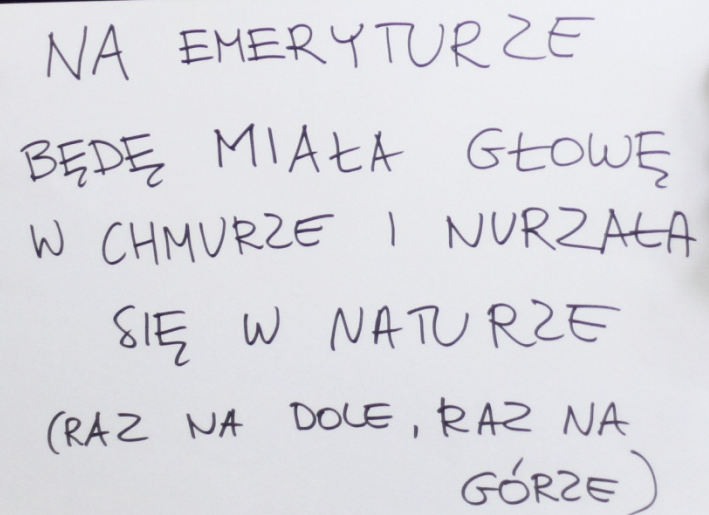 NA EMERYTURZE
BĘDĘ MIAŁA GŁOWĘ
W CHMURZE I NURZAŁA
SIĘ W NATURZE
(RAZ NA DOLE, RAZ NA
GÓRZE)